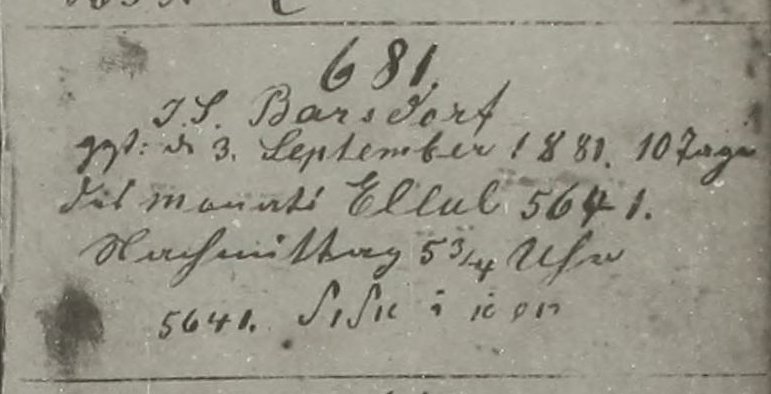 681.
J. S. Barsdorf
gest: d 3. September 1881. 10 Tage
des monats Ellul 5641.
Nachmittag 5 3/4 Uhr
5641. י אלול